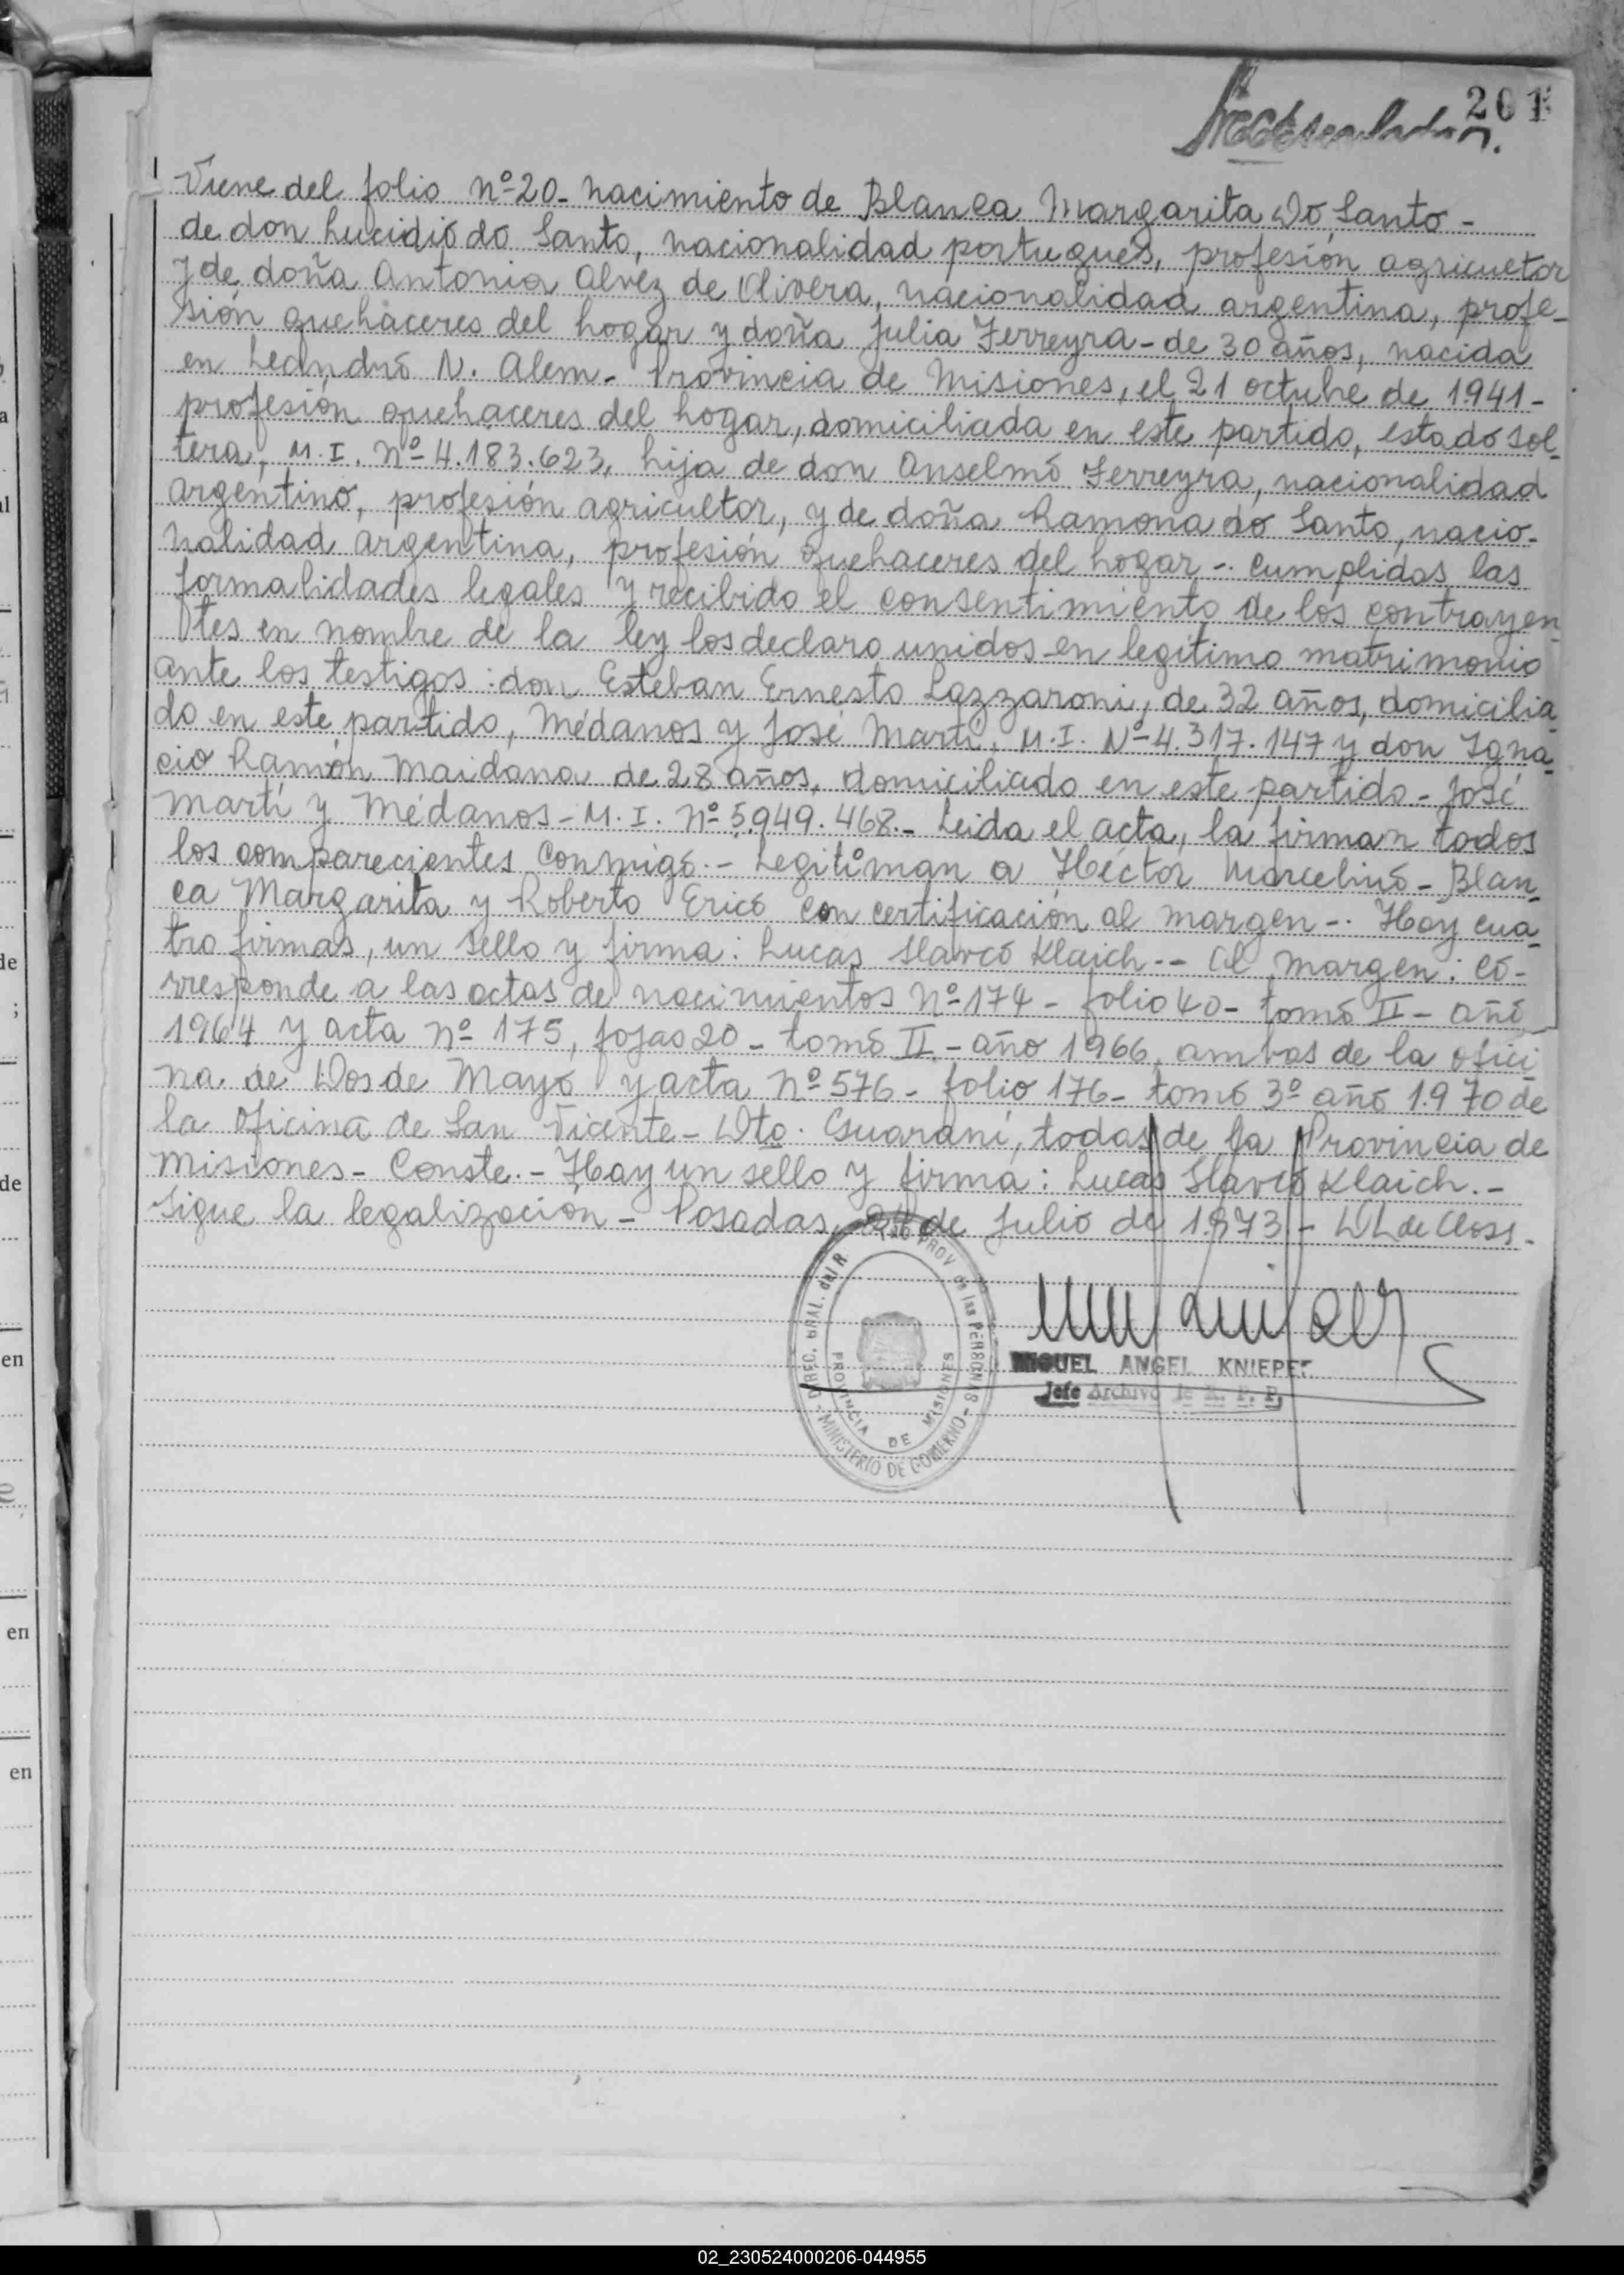 201
Viene del folio Nº 20- nacimiento de Blanca Margarita Do Santo -
de don Lucidio do Santo, nacionalidad portugués, profesión agricultor
y de doña Antonia Alvez de Olivera, nacionalidad argentina, profe-
sión quehaceres del hogar y doña Julia Ferreyra - de 30 años, nacida
en Leandro N. Alem - Provincia de Misiones, el 21 octubre de 1941 -
profesión quehaceres del hogar, domiciliada en este partido, estado sol-
tera, M.I. Nº 4.183.623, hija de don Anselmo Ferreyra, nacionalidad
argentino, profesión agricultor, y de doña Ramona do Santo, nacio-
nalidad argentina, profesión quehaceres del hogar -. Cumplidas las
formalidades legales y recibido el consentimiento de los contrayen-
tes en nombre de la ley los declaro unidos en legítimo matrimonio
ante los testigos: don Esteban Ernesto Lazzaroni, de 32 años, domicilia-
do en este partido, Médanos y José Martí, M.I. Nº 4.317.147 y don Igna-
cio Ramón Maidana de 28 años, domiciliado en este partido - José
Martí y Médanos - M.I. Nº 5.949.468.- Leida el acta, la firman todos
los comparecientes conmigo.- Legitiman a Héctor Marcelino - Blan-
ca Margarita y Roberto Erico con certificación al margen -. Hay cua-
tro firmas, un sello y firma: Lucas Slavco Klaich.-- Al margen: Co-
rresponde a las actas de nacimientos Nº 174 - folio 40 - tomo II - año
1964 y acta Nº 175, fojas 20 - tomo II - año 1966, ambas de la ofici-
na de Dos de Mayo y acta Nº 576 - folio 176 - tomo 3º año 1970 de
la Oficina de San Vicente - Dto. Guaraní, todas de la Provincia de
Misiones - Conste.- Hay un sello y firma: Lucas Slavco Klaich.-
Sigue la legalización - Posadas, 24 de Julio de 1.973 - DL de Closs.-
PROV de las PERSONAS
MINISTERIO DE GOBIERNO
PROVINCIA DE MISIONES
MIGUEL ANGEL KNIEPER
Jefe Archivo de R. P. P.
a
al
de
;
de
en
en
en
02_230524000206-044955